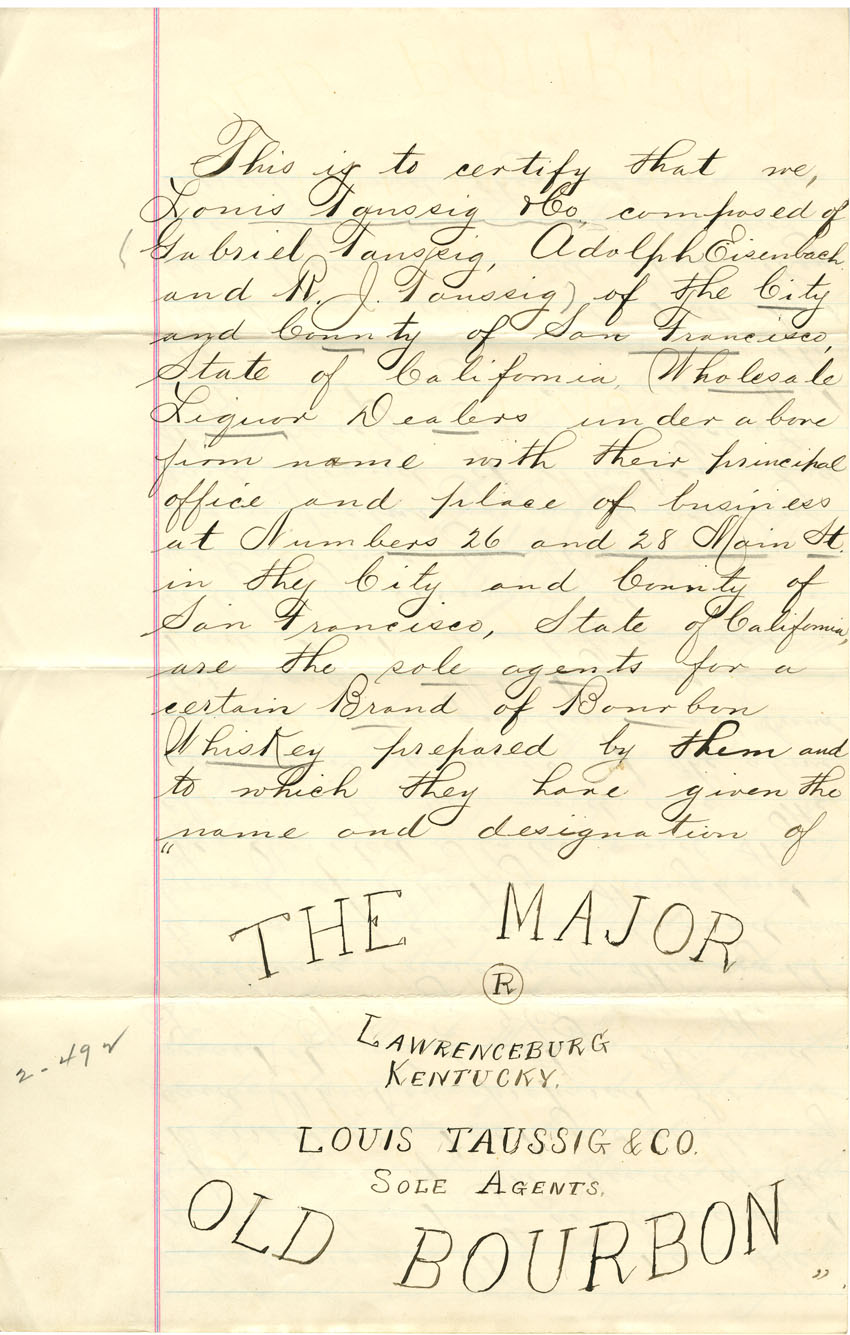 This is to certify that we,
Louis Taussig & Co. composed of
(Gabriel Taussig, Adolph Eisenbach
and R. J. Taussig) of the City
and County of San Francisco,
State of California, Wholesale
Liquor Dealers under above
firm name with their principal
office and place of business
at Numbers 26 and 28 Main St.
in the City and County of
San Francisco, State of California,
are the sole agents for a
certain Brand of Bourbon
Whiskey prepared by them and
to which they have given the
name and designation of
"
THE MAJOR
R
LAWRENCEBURG
KENTUCKY.
2-492
LOUIS TAUSSIG & CO.
SOLE AGENTS.
OLD BOURBON
"